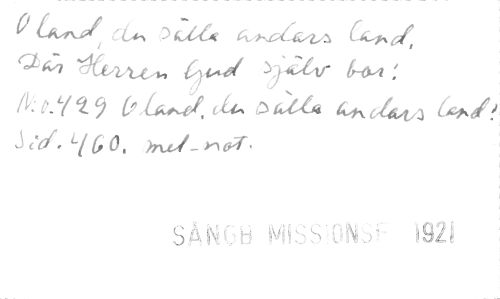 O land, du sälla andars land,
Där Herren Gud själv bor!
No. 429 O land, du sälla andars land!
Sid. 460. mel-not.
SÅNGB MISSIONSF 1921